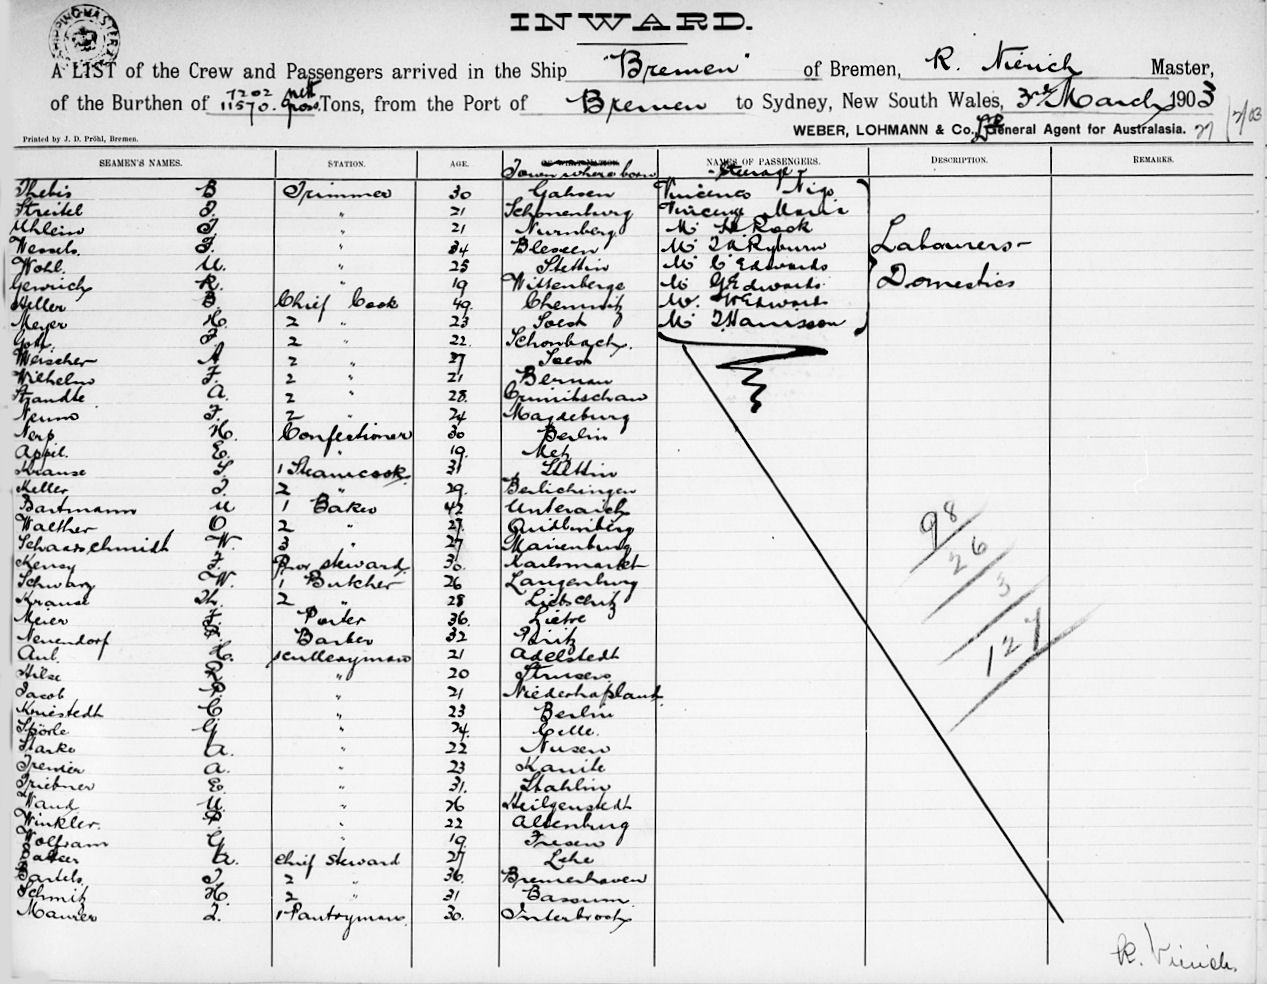 INWARD.
SHIPPING MASTER
A LIST of the Crew and Passengers arrived in the Ship "Bremen" of Bremen, R. Nierich Master,
of the Burthen of 7202 nett 11570. gross Tons, from the Port of Bremen to Sydney, New South Wales, 3rd March 1903
Printed by J. D. Pröhl, Bremen.
WEBER, LOHMANN & Co., Ld General Agent for Australasia.
SEAMEN'S NAMES. STATION. AGE. Town where born NAMES OF PASSENGERS. Steerage DESCRIPTION. REMARKS.
Thebis B Trimmer 30 Gahsen Vincenco Nigo
Streitel J. " 21 Schonenburg Vincenze Maria
Uhlein J. " 21 Nurnberg Mr H Rook
Wessels. F. " 34 Blesseen Mr J W Ryburn Labourers-
Wohl. U. " 25 Stettin Mr C Edwards
Genrich R. " 19 Wittenberge Mr G Edwards Domestics
Heller B Chief Cook 49. Chemnitz Mr. W Edwards
Meyer H. 2 " 23 Soest Mr J. Harrisson
Gott. F. 2 22. Schonbach.
Weischer A 2 " 27 Soest
Wilhelm F. 2 " 21 Bernau
Standte A. 2 " 28. Crimitschau
Neuno F. 2 " 24 Magdeburg
Nerp H. Confectioner 30 Berlin
Appil. E. " 19. Metz
Krause S. 1 Steamcook 31 Stettin
Keller J. 2 " 29. Berlichingen
Bartmann U 1 Baker 42 Unteraich
Walther O 2 " 27. Quidlinbirg
Schaarschmidt W. 3 " 27 Marienburg
Kensy F. Prov steward 30. Karlsmarkt
Schwarz W. 1 Butcher 26 Langenburg
Krause Th. 2 " 28 Liebschutz
Meier F. Porter 36. Lietre
Neuendorf P. Barber 32 Pöritz
Aul. H. Sculleryman 21 Adelstedt
Hilse R " 20
Jacob P. " 21
Kniestedt C " 23 Berlin
Spörle G " 24. Celle.
Starke A. " 22 Nusen
Tremer A. " 23 Kanite
Triebner E. " 31. Stahlin
Wand U. " 26 Heilgenstedt
Winkler. P. " 22 Altenburg
Wolfram G " 19. Fresen
A. Chief steward 27 Lehe
Bartels. J. 2 " 36. Bremerhaven
Schmitz H. 2 " 31 Bassum.
Maurer L. 1 Pantryman 30.
98
26
3
127
R. Nierich.